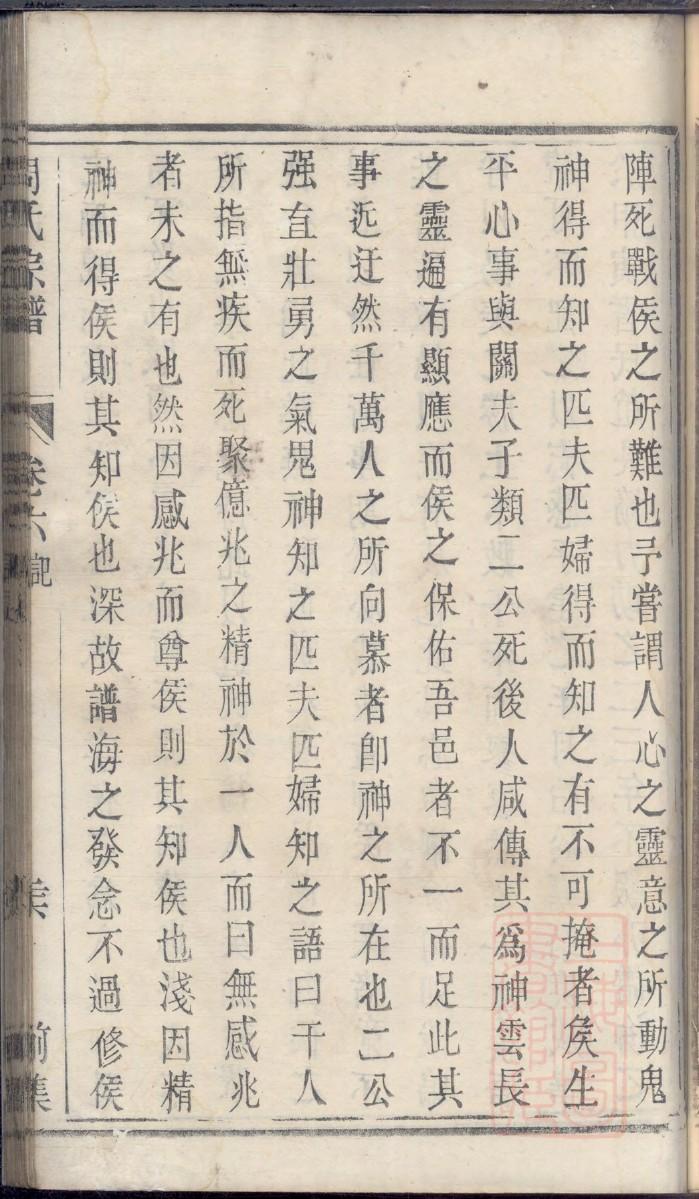 陣死戰侯之所難也予嘗謂人心之靈意之所動鬼
神得而知之匹夫匹婦得而知之有不可掩者矦生
平心事與關夫子類二公死後人咸傳其爲神雲長
之靈遍有顯應而侯之保佑吾邑者不一而足此其
事近迂然千萬人之所向慕者卽神之所在也二公
强直壯勇之氣鬼神知之匹夫匹婦知之語曰千人
所指無疾而死聚億兆之精神於一人而曰無感兆
者未之有也然因感兆而尊侯則其知侯也淺因精
神而得侯則其知侯也深故譜海之發念不過修侯
周氏宗譜
卷六記
前集